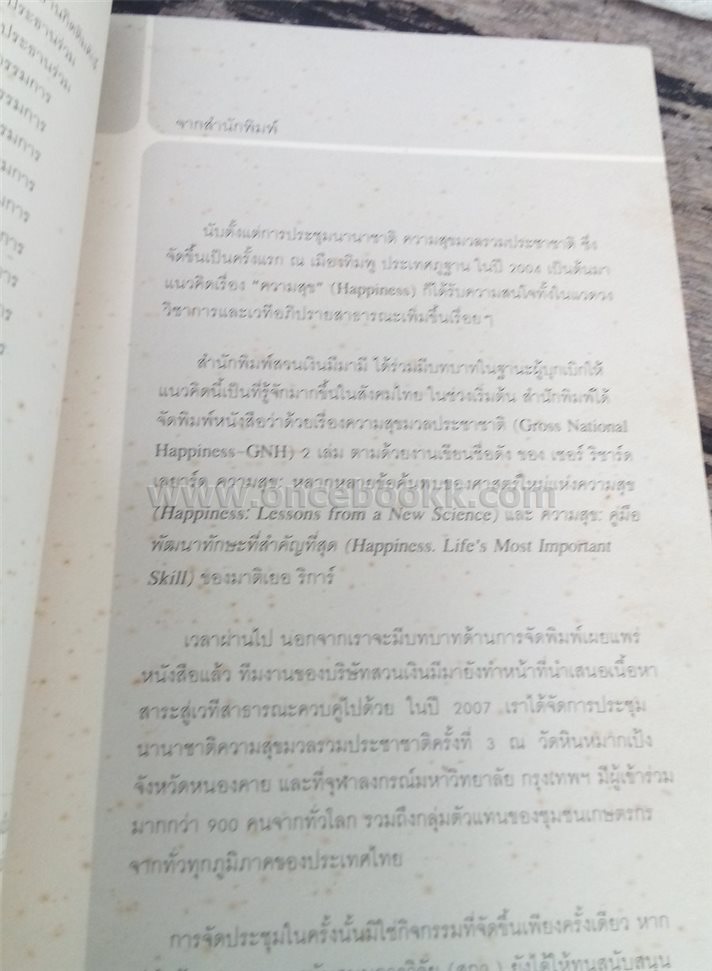 จากสำนักพิมพ์
นับตั้งแต่การประชุมนานาชาติ ความสุขมวลรวมประชาชาติ ซึ่ง
จัดขึ้นเป็นครั้งแรก ณ เมืองทิมพู ประเทศภูฐาน ในปี 2004 เป็นต้นมา
แนวคิดเรื่อง "ความสุข" (Happiness) ก็ได้รับความสนใจทั้งในแวดวง
วิชาการและเวทีอภิปรายสาธารณะเพิ่มขึ้นเรื่อยๆ
สำนักพิมพ์สวนเงินมีมามี ได้ร่วมมีบทบาทในฐานะผู้บุกเบิกให้
แนวคิดนี้เป็นที่รู้จักมากขึ้นในสังคมไทย ในช่วงเริ่มต้น สำนักพิมพ์ได้
จัดพิมพ์หนังสือว่าด้วยเรื่องความสุขมวลประชาชาติ (Gross National
Happiness-GNH) 2 เล่ม ตามด้วยงานเขียนชื่อดัง ของ เซอร์ ริชาร์ด
เลยาร์ด ความสุข: หลากหลายข้อค้นพบของศาสตร์ใหม่แห่งความสุข
www.oncebookk.com
(Happiness: Lessons from a New Science) และ ความสุข: คู่มือ
พัฒนาทักษะที่สำคัญที่สุด (Happiness. Life's Most Important
Skill) ของมาติเยอ ริการ์
เวลาผ่านไป นอกจากเราจะมีบทบาทด้านการจัดพิมพ์เผยแพร่
หนังสือแล้ว ทีมงานของบริษัทสวนเงินมีมายังทำหน้าที่นำเสนอเนื้อหา
สาระสู่เวทีสาธารณะควบคู่ไปด้วย ในปี 2007 เราได้จัดการประชุม
นานาชาติความสุขมวลรวมประชาชาติครั้งที่ 3 ณ วัดหินหมากเป้ง
จังหวัดหนองคาย และที่จุฬาลงกรณ์มหาวิทยาลัย กรุงเทพฯ มีผู้เข้าร่วม
มากกว่า 900 คนจากทั่วโลก รวมถึงกลุ่มตัวแทนของชุมชนเกษตรกร
จากทั่วทุกภูมิภาคของประเทศไทย
การจัดประชุมในครั้งนั้นมิใช่กิจกรรมที่จัดขึ้นเพียงครั้งเดียว หาก
(สกว.) ยังได้ให้ทุนสนับสนุน